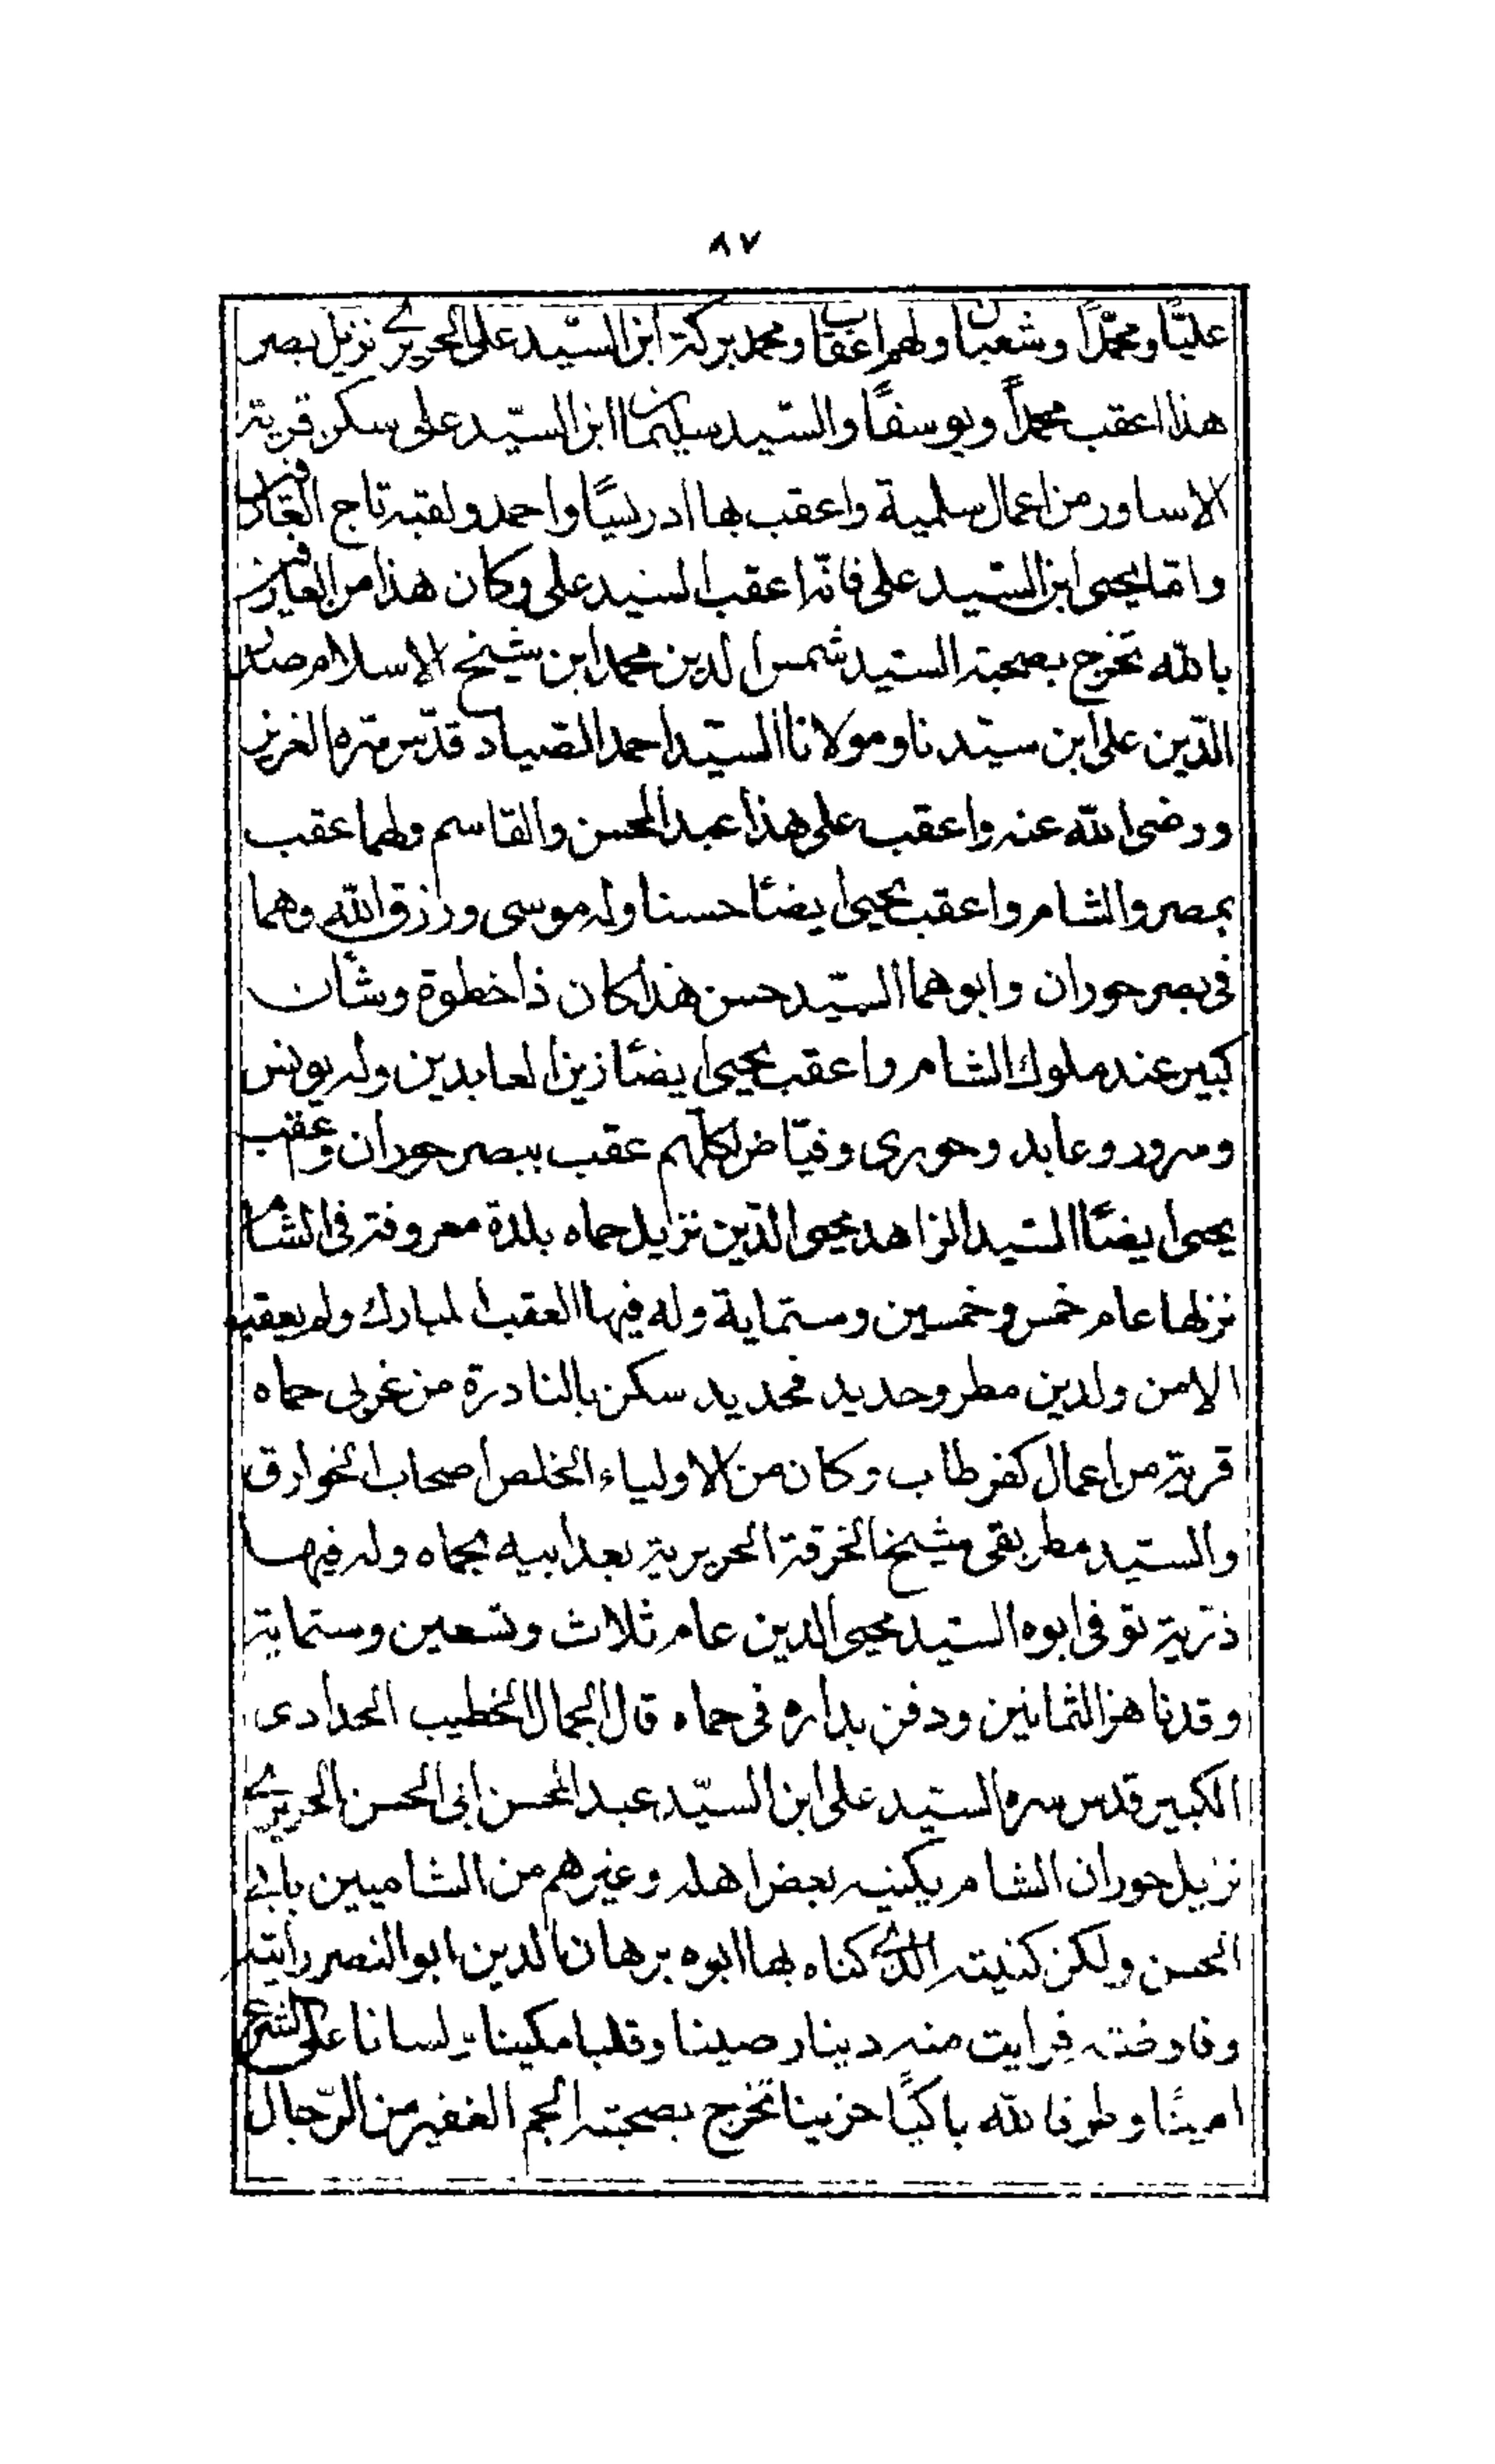 ٨٧
عليًّا ومحمّداً وشعبان ولهم اعقاب ومحمد بركة ابن السّيد على الحريرى نزيل بصر
هذا اعقب محمداً ويوسفًا والسّيد سليمان ابن السّيد على سكن قرية
الاساور من اعمال سلمية واعقب بها ادريسًا واحمد ولقبه تاج العارفين
وامّا يحيى ابن السّيد على فانّه اعقب السيد على وكان هذا من العارفين
بالله تخرج بصحبة السّيد شمس الدين محمد ابن شيخ الاسلام صدر
الدّين على ابن سيّدنا ومولانا السيّد احمد الصّياد قدّس سّره العزيز
ورضى الله عنه واعقب على هذا عبد المحسن والقاسم ولهما عقب
بمصر والشام واعقب يحيى ايضًا حسنا وله موسى ورزق الله وهما
فى بصر حوران وابوهما السّيد حسن هذا كان ذا خطوة وشأن
كبير عند ملوك الشام واعقب يحيى ايضًا زين العابدين وله يونس
وسرور وعابد وحورى وفيّاض لكلهم عقب ببصر حوران وعقب
يحيى ايضًا السّيد الزاهد محيى الدّين نزيل حماه بلدة معروفة فى الشام
نزلها عام خمس وخمسين وستماية وله فيها العقب المبارك ولم يعقب
الا من ولدين مطر وحديد فحديد سكن بالنادرة من غربى حماه
قرية من اعمال كفر طاب وكان من الاولياء الخلص اصحاب الخوارق
والسّيد مطر بقى مشيخا لخرقة الحريرية بعد ابيه بحماه وله فيها
ذرّية توفى ابوه السيد محيى الدين عام ثلاث وتسعين وستماية
وقد ناهز الثمانين ودفن بداره فى حماه قال الجمال الخطيب الحدادى
الكبير قدس سره السيد على ابن السيّد عبد المحسن ابى الحسن الحريرى
نزيل حوران الشام يكنيه بعض اهله وغيرهم من الشاميين بابى
الحسن ولكن كنيته الذى كناه بها ابوه برهان الدين ابو النصر رايته
وفاوضته فرايت منه دينار صينا وقلبا مكينا ولسانا على الشرع
امينًا وطرفا لله باكيًا حزينا تخرج بصحبته الجم الغفير من الرّجال